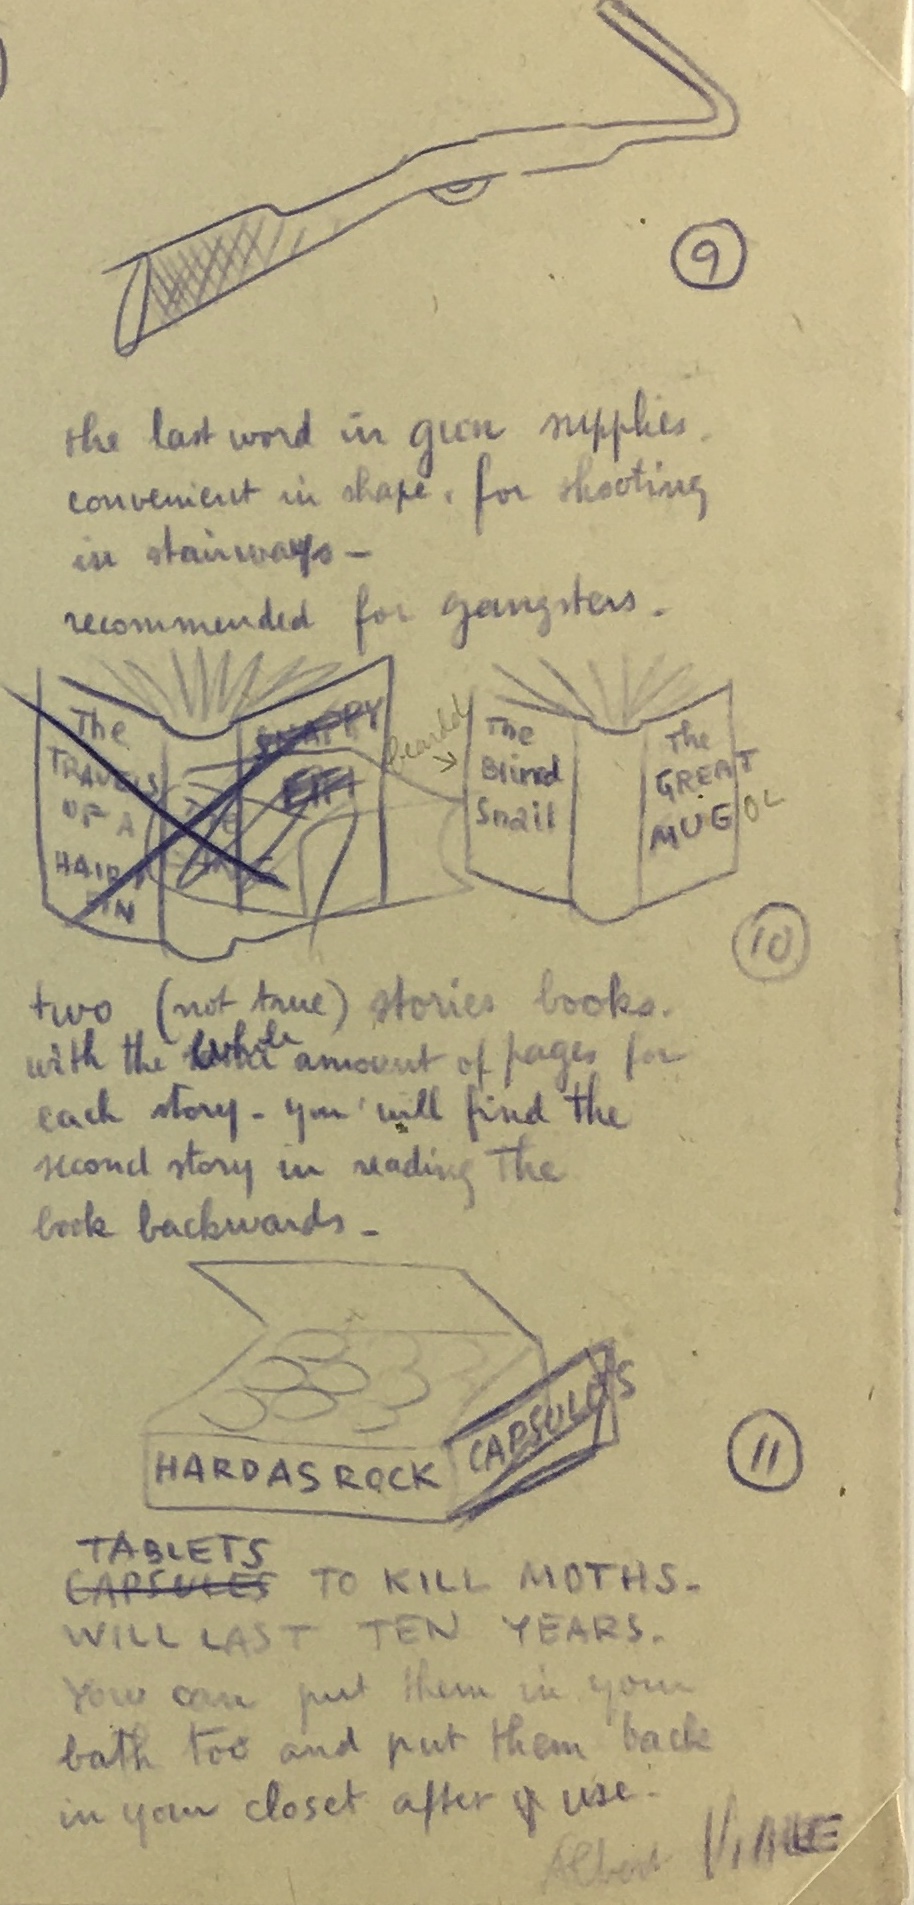 9
the last word in gun supplies.
convenient in shape. for shooting
in stairways —
recommended for gangsters.
The
TRAVELS
OF A
HAIR
PIN
SNAPPY
bearded
The
Blind
Snail
The
GREAT
MUGOL
10
two (not true) stories books.
with the whole amount of pages for
each story - you will find the
second story in reading The
book backwards -
HARD AS ROCK
CAPSULOS
11
TABLETS
CAPSULES TO KILL MOTHS.
WILL LAST TEN YEARS.
You can put them in your
bath too and put them back
in your closet after use.
Albert VIALE